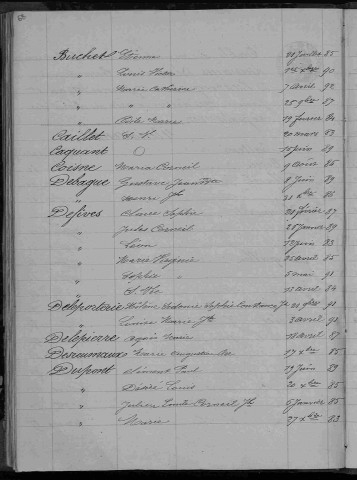 Birchet Etienne 20 Juillet 85
" Louis Victor 90
" Marie Catherine 7 Avril 92
" " " 25 9bre 87
" Marie 19 février 84
Caillet S. N. 20 mars 83
Caquant 15 juin 89
Coisne Maria Corneil 9 Avril 85
Debaque Gustave 8 Juin 89
" Henri Jh 86
Defives Claire Sophie 28 février 87
" Jules Corneil 25 Janvier 89
" Léon 13 Juin 83
" Marie Eugénie 25 Avril 85
" Sophie " 5 mai 91
" S. N. 12 Avril 84
Deleporterie Sophie Constance 90
" Louise Marie Jh 3 Avril 92
Delepierre 18 Avril 87
Desrumaux Marie Augustine 17 Xbre 85
Dupont Vincent Paul 19 Juin 89
" Désiré Louis 20 Xbre 85
" Julien Louis Corneil Jh 6 Janvier 85
" Marie 27 Xbre 83